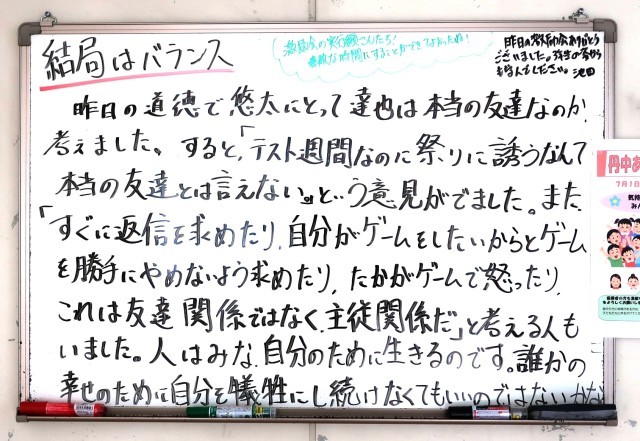 結局はバランス
激励会の実行委員さんたち!
素敵な時間にすることができてよかったね!
昨日の激励会ありがとう
ございました。
池田
昨日の道徳で悠太にとって達也は本当の友達なのか
考えました。すると、「テスト週間なのに祭りに誘うなんて
本当の友達とは言えない。」という意見がでました。また、
「すぐに返信を求めたり、自分がゲームをしたいからとゲーム
を勝手にやめないよう求めたり、たかがゲームで怒ったり、
これは友達関係ではなく、主従関係だ」と考える人も
いました。人はみな、自分のために生きるのです。誰かの
幸せのために自分を犠牲にし続けなくてもいいのではないかな
丹中あ
7月1日
気持
みん